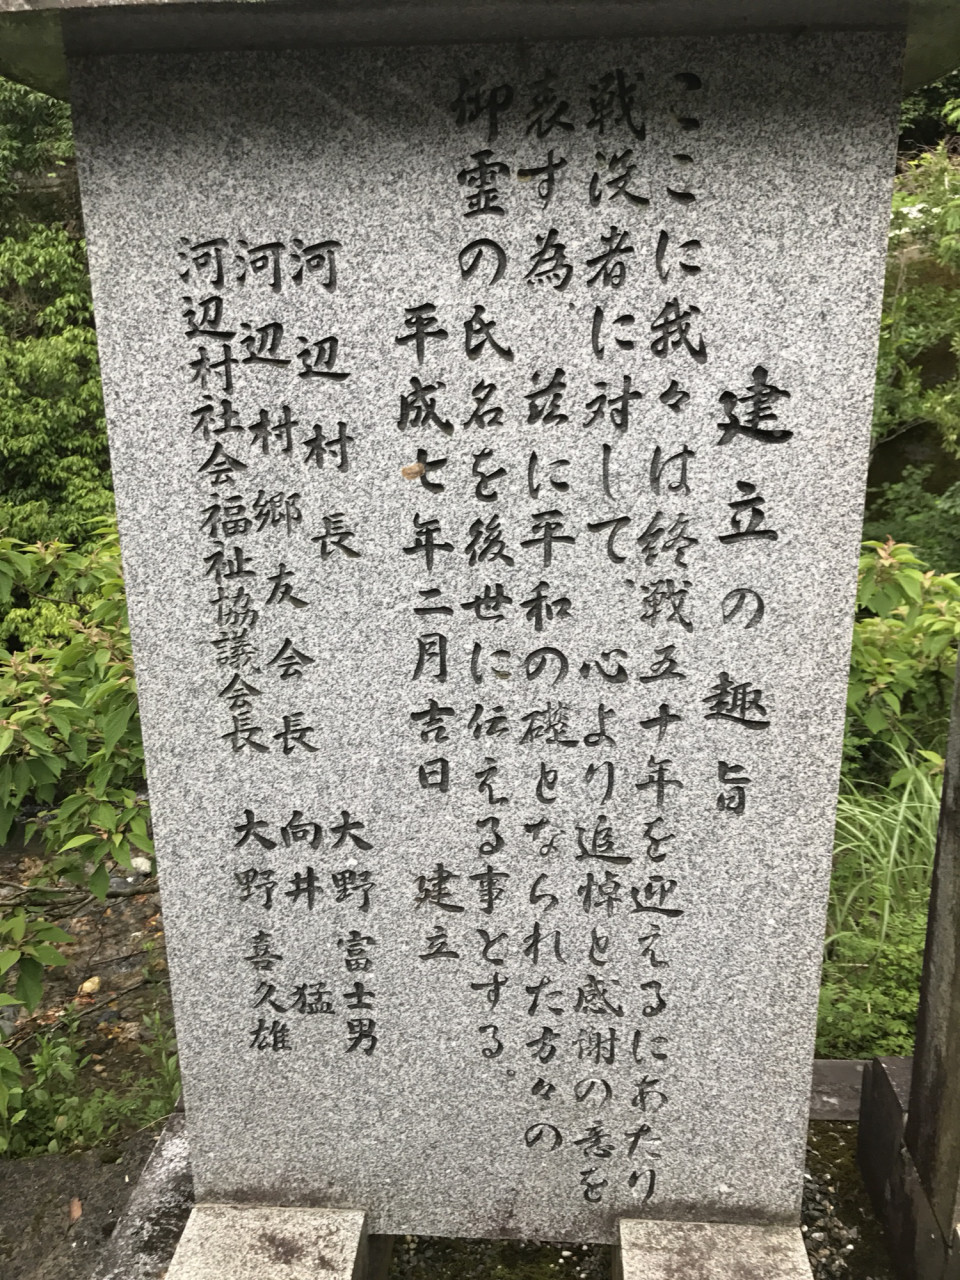 建立の趣旨
ここに我々は終戦五十年を迎えるにあたり
戦没者に対して、心より追悼と感謝の意を
表す為、茲に平和の礎となられた方々の
御霊の氏名を後世に伝える事とする。
平成七年二月吉日 建立
河辺村長 大野富士男
河辺村郷友会長 向井猛
河辺村社会福祉協議会長 大野喜久雄